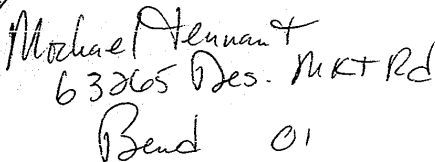 Michael Tennant
63265 Des. MKT Rd
Bend 01